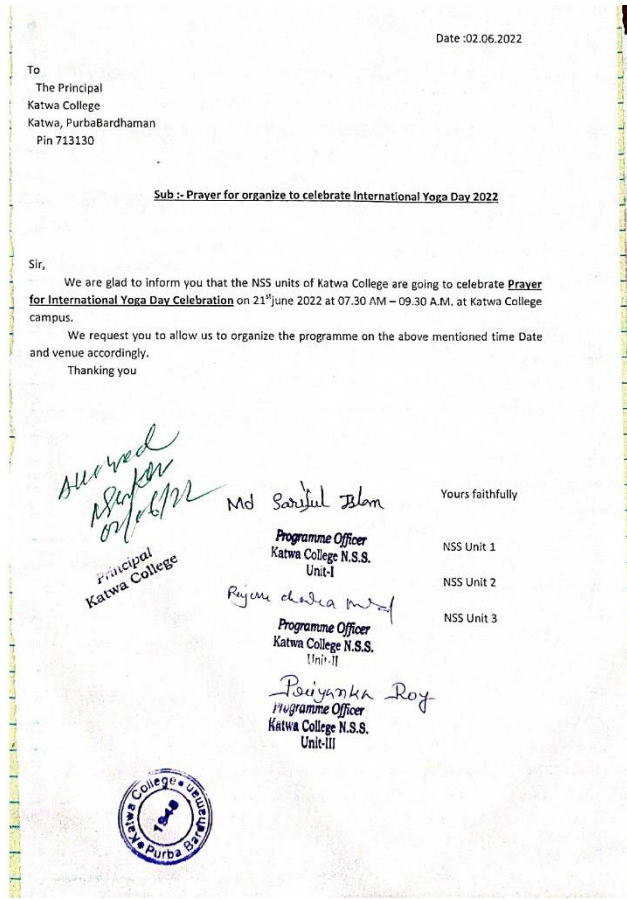 Date :02.06.2022
To
The Principal
Katwa College
Katwa, PurbaBardhaman
Pin 713130
Sub :- Prayer for organize to celebrate International Yoga Day 2022
Sir,
We are glad to inform you that the NSS units of Katwa College are going to celebrate Prayer
for International Yoga Day Celebration on 21st june 2022 at 07.30 AM – 09.30 A.M. at Katwa College
campus.
We request you to allow us to organize the programme on the above mentioned time Date
and venue accordingly.
Thanking you
02/06/22
Principal
Katwa College
Md Sariful Islam
Yours faithfully
Programme Officer
Katwa College N.S.S.
Unit-I
NSS Unit 1
NSS Unit 2
NSS Unit 3
Programme Officer
Katwa College N.S.S.
Unit-II
Priyanka Roy
Programme Officer
Katwa College N.S.S.
Unit-III
Katwa College
Purba Bardhaman
1948